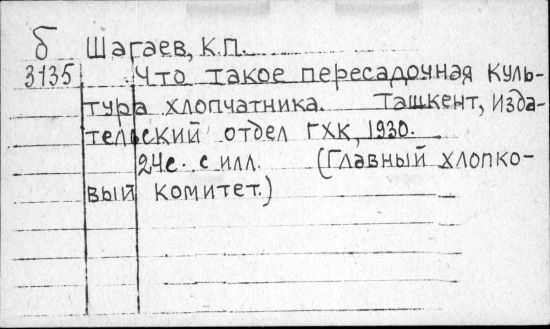 б Шагаев, К.П.
3135 Что такое пересадочная куль-
тура хлопчатника. Ташкент, Изда-
тельский отдел ГХК, 1930.
24с. с илл. (Главный хлопко-
вый комитет.)